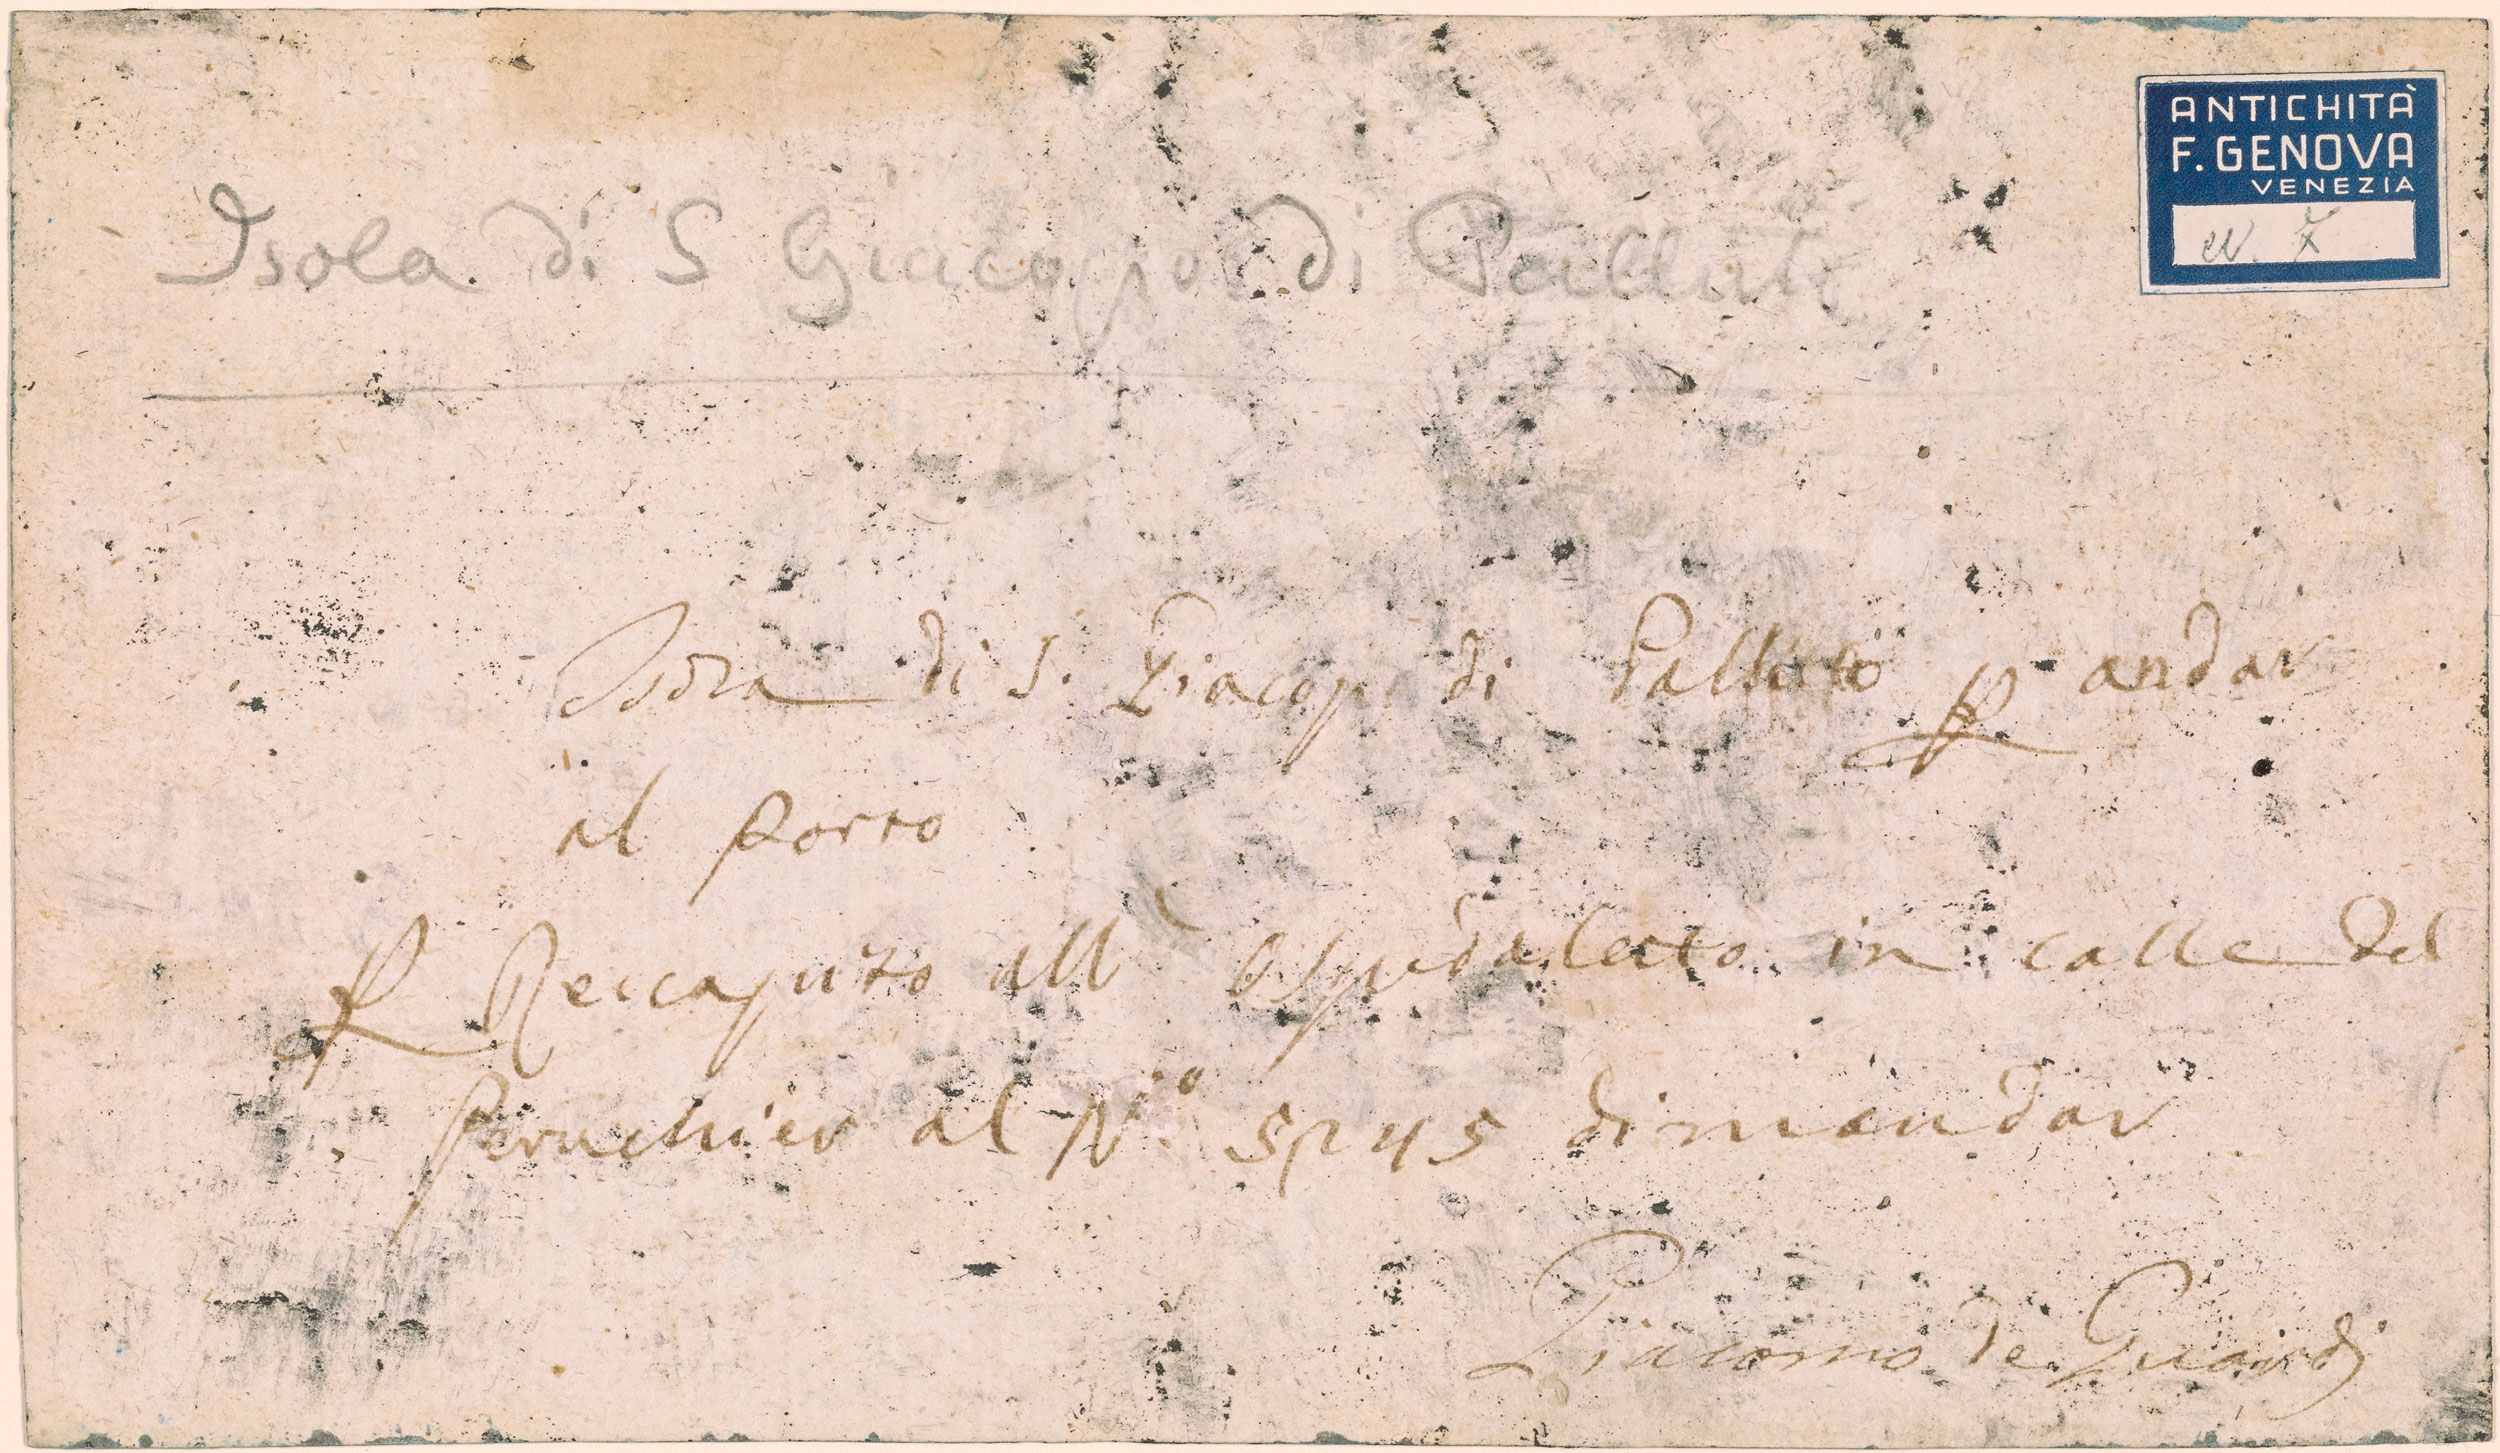 ANTICHITÀ
F. GENOVA
VENEZIA
Isola di S Giacopo di Palluti
Isola di S. Giacopo di Palluto p andar
al Porto
p Reccapito all' Ospedaletto in calle del
Peruchier al N.o 5245 dimandar
Giacomo de Guardi